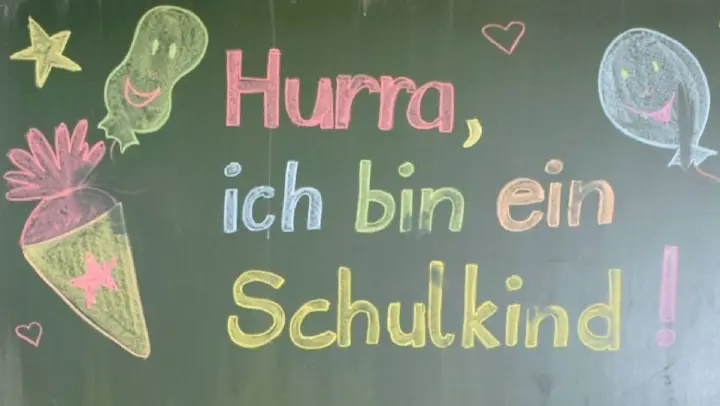 Hurra,
ich bin ein
Schulkind!